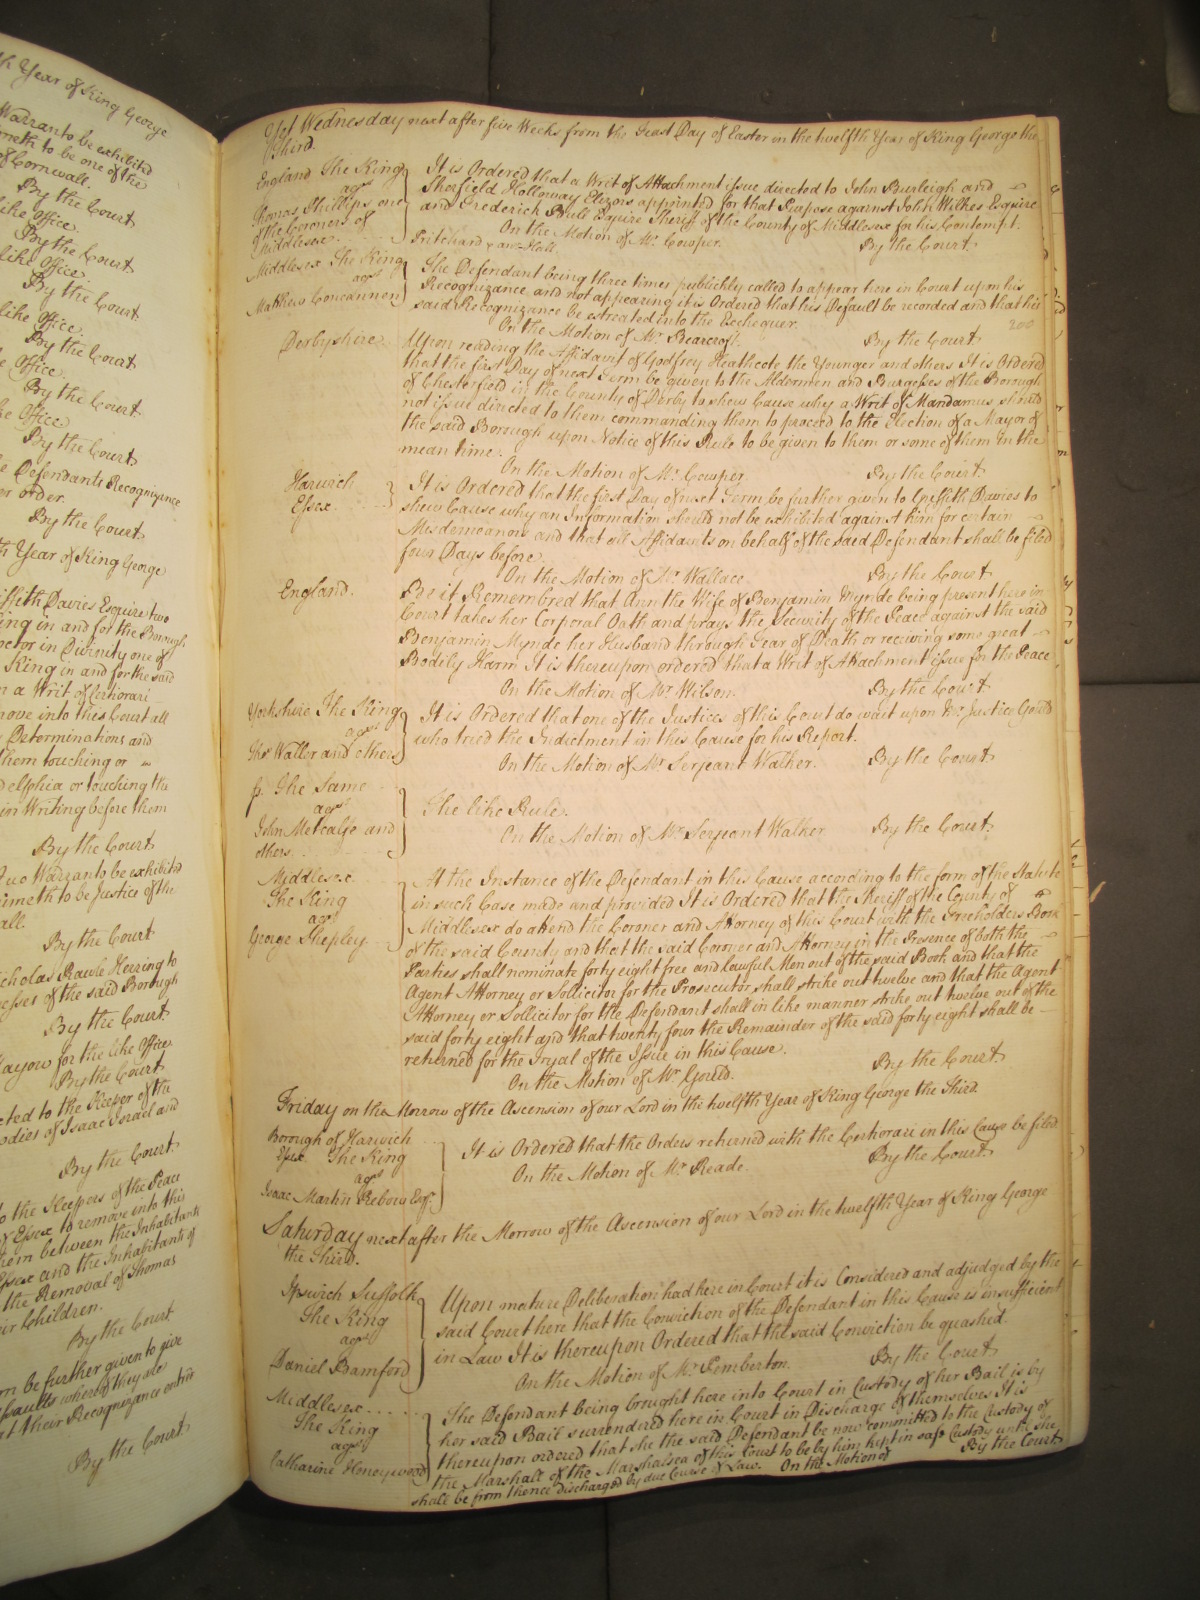 th Year of King George
Warranto be exhibited
imeth to be one of the
of Cornwall.
By the Court
like Office.
By the Court
like Office
By the Court
like Office.
By the Court
Office.
By the Court
like Office
By the Court
Defendants Recognizance
order.
By the Court
th Year of King George
iffith Davies Esquire two
ing in and for the Borough
ctor in Divinity one of
King in and for the said
a Writ of Certiorari
move into this Court all
Determinations and
them touching or
delphia or touching the
in Writing before them
By the Court
Quo Warranto be exhibited
imeth to be Justice of the
all.
By the Court
icholas Rawle Herring to
gesses of the said Borough
By the Court
Mayow for the like Office
By the Court
cted to the Keeper of the
odies of Isaac Israel and
By the Court
to the Keepers of the Peace
of Essex to remove into this
them between the Inhabitants
Essex and the Inhabitants of
the Removal of Thomas
eir Children.
By the Court
m be further given to give
ssaults whereof they are
at their Recognizances
By the Court
Yet Wednesday next after five Weeks from the Feast Day of Easter on the twelfth Year of King George the
Third.
England The King
agst
Thomas Phillips one
of the Coroners of
Middlesex
It is Ordered that a Writ of Attachment issue directed to John Burleigh and
Sherfield Holloway Elizors appointed for that Purpose against John Wilkes Esquire
and Frederick Bull Esquire Sheriff of the County of Middlesex for his Contempt.
On the Motion of Mr. Cowper. By the Court
Middlesex The King
agst
Matthew Concannon
The Defendant being three times publickly called to appear here in Court upon his
Recognizance and not appearing it is Ordered that his Default be recorded and that his
said Recognizance be estreated into the Exchequer. 200
On the Motion of Mr. Bearcroft. By the Court
Derbyshire.
Upon reading the Affidavit of Godfrey Heathcote the Younger and others It is Ordered
that the first Day of next Term be given to the Aldermen and Burgesses of the Borough
of Chesterfield in the County of Derby to shew Cause why a Writ of Mandamus should
not issue directed to them commanding them to proceed to the Election of a Mayor of
the said Borough upon Notice of this Rule to be given to them or some of them In the
mean time.
On the Motion of Mr. Cowper. By the Court
Harwich
Essex.
It is Ordered that the first Day of next Term be further given to Griffith Davies to
shew Cause why an Information should not be exhibited against him for certain
Misdemeanors and that all Affidavits on behalf of the said Defendant shall be filed
four Days before.
On the Motion of Mr. Wallace. By the Court
England.
Be it Remembred that Ann the Wife of Benjamin Mynde being present here in
Court takes her Corporal Oath and prays the Security of the Peace against the said
Benjamin Mynde her Husband through Fear of Death or receiving some great
Bodily Harm It is thereupon ordered that a Writ of Attachment issue for the Peace
On the Motion of Mr. Wilson. By the Court
Yorkshire The King
agst
Thos. Waller and others
It is Ordered that one of the Justices of this Court do wait upon Mr. Justice Gould
who tried the Indictment in this Cause for his Report.
On the Motion of Mr. Serjeant Walker. By the Court
The Same
agst
John Metcalfe and
others.
The like Rule.
On the Motion of Mr. Serjeant Walker By the Court
Middlesex
The King
agst
George Shepley
At the Instance of the Defendant in this Cause according to the form of the Statute
in such Case made and provided It is Ordered that the Sheriff of the County of
Middlesex do attend the Coroner and Attorney of this Court with the Freeholders Book
of the said County and that the said Coroner and Attorney in the Presence of both the
Parties shall nominate forty eight free and lawful Men out of the said Book and that the
Agent Attorney or Sollicitor for the Prosecutor shall strike out twelve and that the Agent
Attorney or Sollicitor for the Defendant shall in like manner strike out twelve out of the
said forty eight and that twenty four the Remainder of the said forty eight shall be
returned for the Tryal of the Issue in this Cause.
On the Motion of Mr. Gould. By the Court
Friday on the Morrow of the Ascension of our Lord in the twelfth Year of King George the Third
Borough of Harwich
Essex The King
agst
Isaac Martin Rebow Esqr.
It is Ordered that the Orders returned with the Certiorari in this Cause be filed
On the Motion of Mr. Reade. By the Court
Saturday next after the Morrow of the Ascension of our Lord in the twelfth Year of King George
the Third.
Ipswich Suffolk
The King
agst
Daniel Bamford
Upon mature Deliberation had here in Court it is Considered and adjudged by the
said Court here that the Conviction of the Defendant in this Cause is insufficient
in Law It is thereupon Ordered that the said Conviction be quashed.
On the Motion of Mr. Pemberton. By the Court
Middlesex
The King
agst
Catharine Honeywood
The Defendant being brought here into Court in Custody of her Bail is by
her said Bail surrendered here in Court in Discharge of themselves It is
thereupon ordered that she the said Defendant be now committed to the Custody of
the Marshall of the Marshalsea of this Court to be by him kept in safe Custody until she
shall be from thence discharged by due Course of Law. On the Motion of By the Court